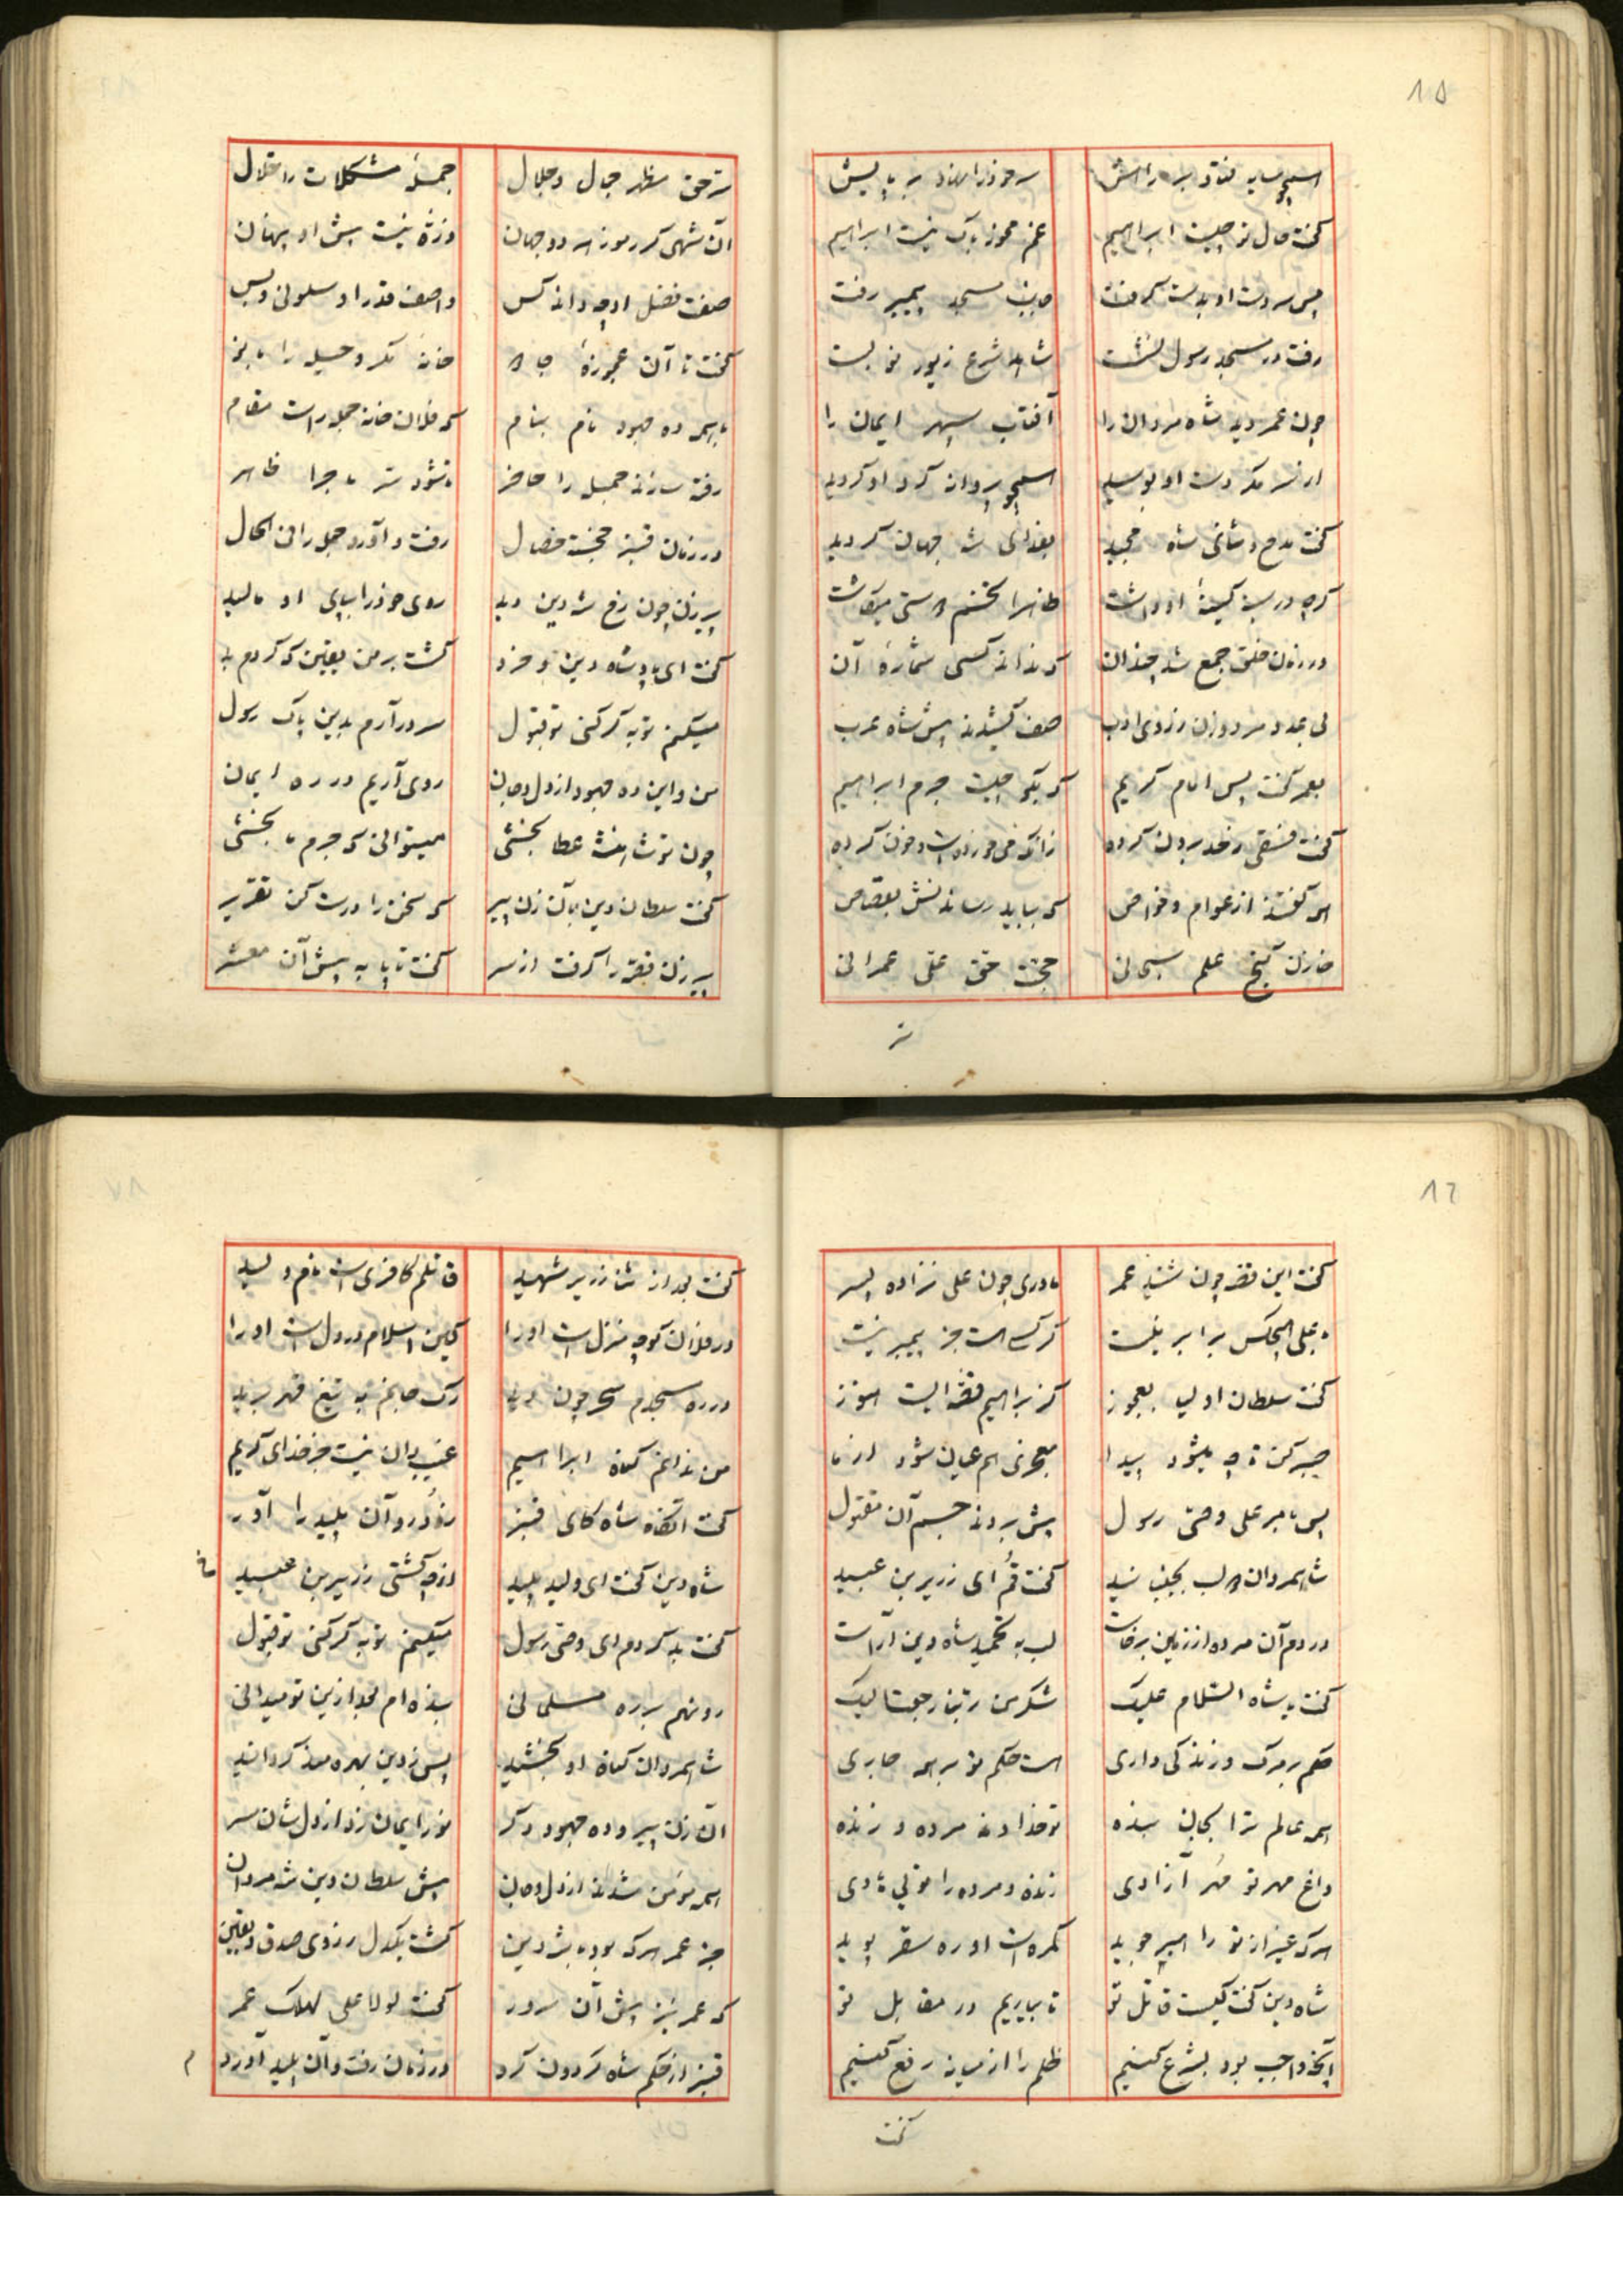 ۸۵
همچو سایه فتاد بر راهش سر خود را نهاد بر پایش
گفت حال تو چیست ابراهیم غم مخور باک نیست ابراهیم
پس سر دست او بدست گرفت جانب مسجد پیمبر رفت
رفت در مسجد رسول نشست شاهد شرع زیور نو بست
چون عمر دید شاه مردان را آفتاب سپهر ایمان را
از سر مکر دست او بوسید همچو پروانه گرد او گردید
گفت مدح و ثنای شاه مجید بعد ازان شه جهان گردید
گرچه در سینه کینه او داشت ظاهرا تخم دوستی میکاشت
در زمان خلق جمع شد چندان که نداند کسی شماره آن
بی عدد مرد و زن ز روی ادب صف کشیدند پیش شاه عرب
بعمر گفت پس امام کریم که بگو چیست جرم ابراهیم
گفت فسقی ز حد برون کرده زانکه می خورده است و خون کرده
همه گفتند از عوام و خواص که بباید رساندنش بقصاص
خازن گنج علم سبحانی حجت حق علی عمرانی
سر حق مظهر جمال و جلال جمله مشکلات را حلال
آن شهی کز رموز هر دو جهان ذره نیست پیش او پنهان
صفت فضل او چه داند کس واصف قدر او سلونی و بس
گفت تا آن عجوزه جادو خانه مکر و حیله را بانو
با همه ده جهود نام بنام که فلان خانه جمله راست مقام
رفته سازند جمله را حاضر تا شود سر ماجرا ظاهر
در زمان قنبر خجسته خصال رفت و آورد جمله را فی الحال
پیرزن چون رخ شه دین دید روی خود را بپای او مالید
گفت ای پادشاه دین و خرد گشت بر من یقین که کردم بد
میکنم توبه گر کنی تو قبول سر در آرم بدین پاک رسول
من و این ده جهود از دل و جان روی آریم در ره ایمان
چون تو شاهنشه عطا بخشی میتوانی که جرم ما بخشی
گفت سلطان دین بآن زن پیر که سخن را درست کن تقریر
پیرزن قصه را گرفت از سر گفت تا پا به پیش آن معشر
سر
۸۶
گفت این قصه چون شنید عمر مادری چون علی نزاده پسر
با علی هیچکس برابر نیست گر کسی هست جز پیمبر نیست
گفت سلطان اولیا بعجوز کز براهیم قصه ایست هنوز
صبر کن تا چه میشود پیدا معجزی هم عیان شود از ما
پس بامر علی وصی رسول پیش بردند جسم آن مقتول
شاهمردان دو لب بجنبانید گفت قم ای زریر بن عبید
در دم آن مرده از زمین برخاست لب به تحمید شاه دین آراست
گفت یا شاه السلام علیک شکر من ربنا رجعنا الیک
حکم بر مرگ و زندگی داری هست حکم تو بر همه جاری
همه عالم ترا بجان بنده تو خداوند مرده و زنده
داغ مهر تو مهر آزادی زنده و مرده را تویی هادی
هرکه غیر از تو را امیر جوید گمره است او ره سقر پوید
شاه دین گفت کیست قاتل تو تا بیاریم در مقابل تو
آنچه واجب بود بشرع کنیم ظلم را از میانه رفع کنیم
گفت بعد از ثنا زریر شهید قاتلم کافری است نام ولید
در فلان کوچه منزل است او را کین اسلام در دل است او را
در ره مسجدم سحر چون دید رگ جانم به تیغ قهر برید
من ندانم گناه ابراهیم غیب دان نیست جز خدای کریم
گفت آنگاه شاه کای قنبر زود رو آن پلید را آور
شاه دین گفت ای ولید پلید از چه کشتی زریر بن عبید
گفت بد کردم ای وصی رسول میکنم توبه گر کنی تو قبول
رو نهم بر ره مسلمانی بنده ام بعد ازین تو میدانی
شاهمردان گناه او بخشید پس ز دین بهره مند گردانید
آن زن پیر و ده جهود دگر نور ایمان زد از دل شان سر
همه مؤمن شدند از دل و جان پیش سلطان دین شه مردان
جز عمر هرکه بود با شه دین گشت یکدل ز روی صدق و یقین
که عمر نیز پیش آن سرور گفت لولا علی لهلک عمر
قنبر از حکم شاه گردون گرد در زمان رفت و آن پلید آورد
گفت